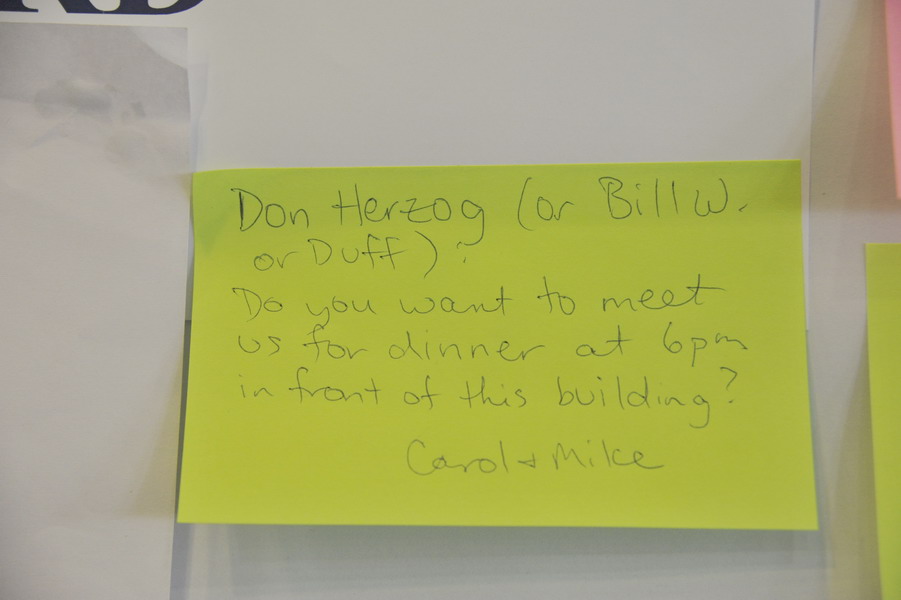 Don Herzog (or Bill W.
or Duff):
Do you want to meet
us for dinner at 6pm
in front of this building?
Carol + Mike